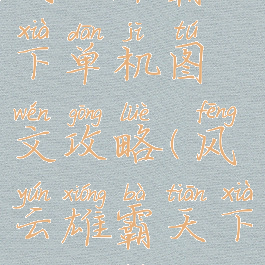 xià dān jī tú
下单机图
wén gōng lüè fēng
文攻略(风
yún xióng bà tiān xià
云雄霸天下